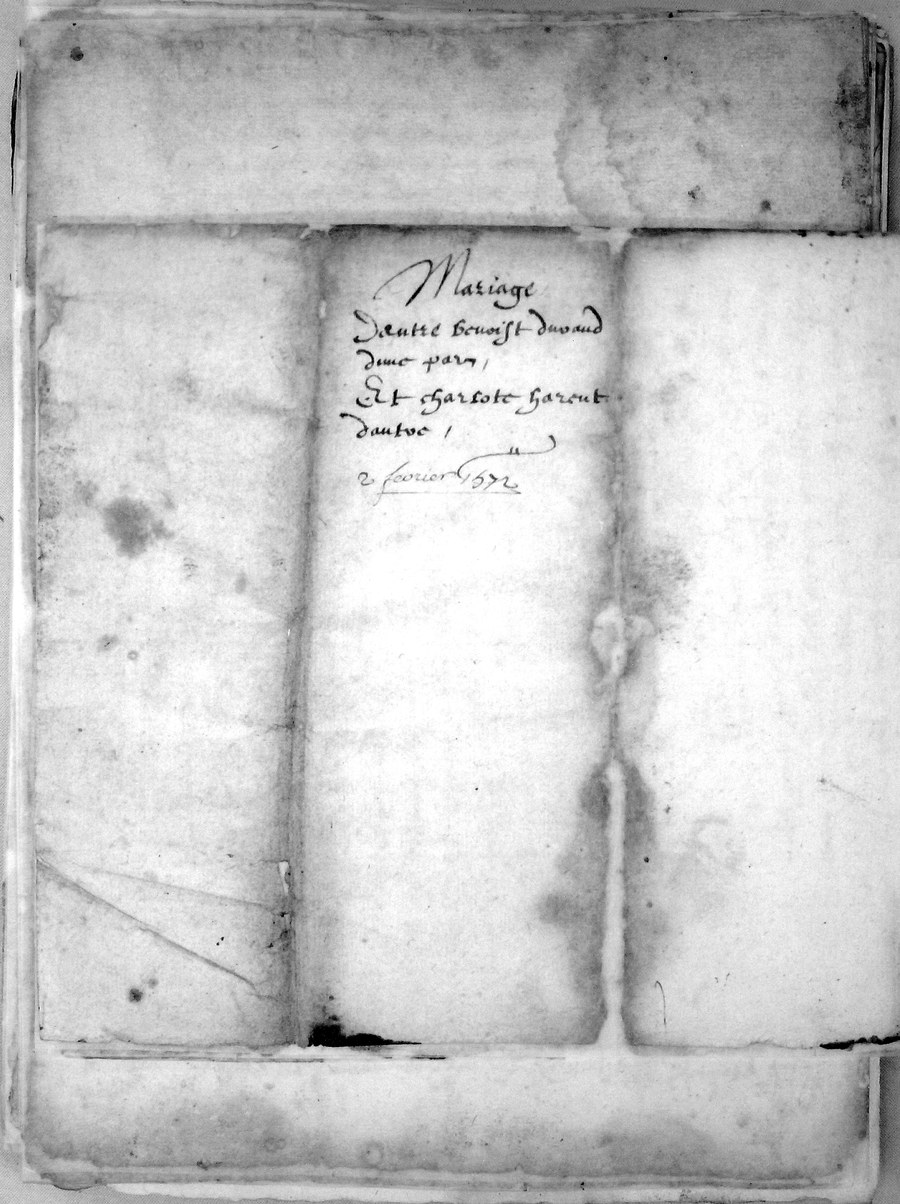 Mariage
Dentre benoist durand
dune part,
Et charlote harent
dautre,
2 febvrier 1572